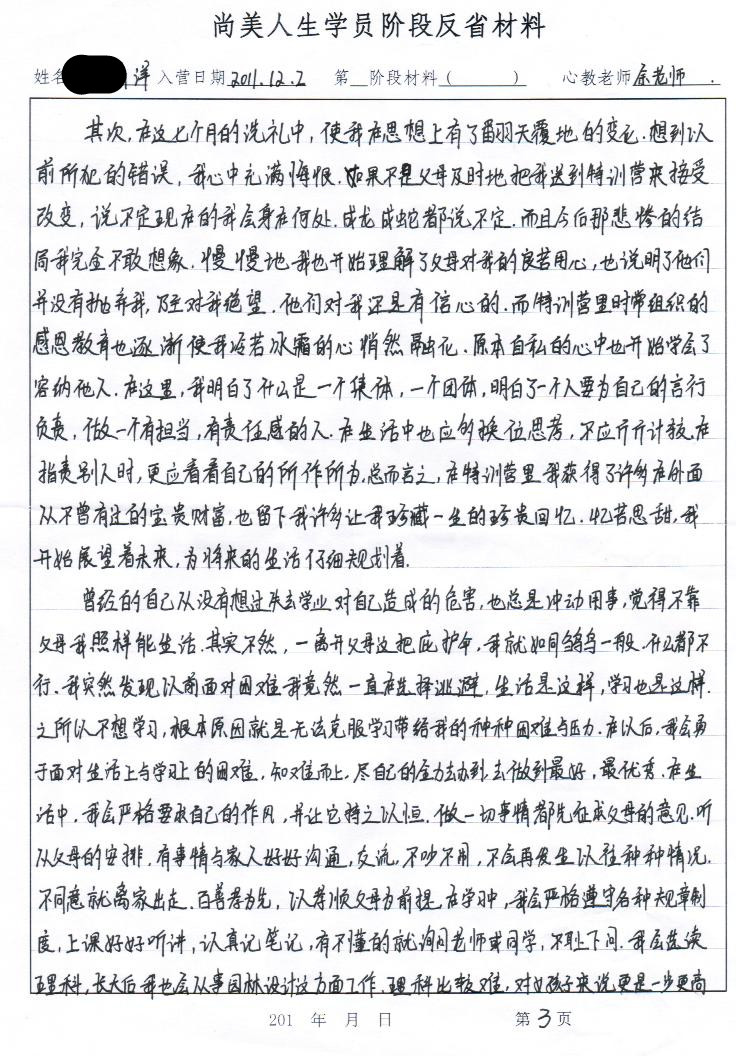 尚美人生学员阶段反省材料
姓名 洋 入营日期 2011.12.2 第 阶段材料( ) 心教老师 余老师 .
其次,在这七个月的洗礼中,使我在思想上有了翻天覆地的变化.想到以
前所犯的错误,我心中充满悔恨.如果不是父母及时地把我送到特训营来接受
改变,说不定现在的我会身在何处.成龙成蛇都说不定.而且今后那悲惨的结
局我完全不敢想象.慢慢地我也开始理解了父母对我的良苦用心,也说明了他们
并没有抛弃我,陌对我绝望.他们对我还是有信心的.而特训营里时常组织的
感恩教育也逐渐使我冷若冰霜的心悄然融化.原本自私的心中也开始学会了
容纳他人.在这里,我明白了什么是一个集体,一个团体,明白了一个人要为自己的言行
负责,做一个有担当,有责任感的人.在生活中也应多换位思考,不应斤斤计较.在
指责别人时,更应看看自己的所作所为.总而言之,在特训营里我获得了许多在外面
从不曾有过的宝贵财富,也留下我许多让我珍藏一生的珍贵回忆.忆苦思甜,我
开始展望着未来,为将来的生活仔细规划着.
曾经的自己从没有想过失去学业对自己造成的危害,也总是冲动用事,觉得不靠
父母我照样能生活.其实不然,一离开父母这把庇护伞,我就如同雏鸟一般.什么都不
行.我突然发现以前面对困难我竟然一直在选择逃避,生活是这样,学习也是这样.
之所以不想学习,根本原因就是无法克服学习带给我的种种困难与压力.在以后,我会勇
于面对生活上与学习上的困难,知难而上.尽自己的全力去办到.去做到最好,最优秀.在生
活中,我会严格要求自己的作风,并让它持之以恒.做一切事情都先征求父母的意见.听
从父母的安排.有事情与家人好好沟通,交流,不吵不闹,不会再发生以往种种情况.
不同意就离家出走.百善孝为先,以孝顺父母为前提.在学习中,我会严格遵守各种规章制
度,上课好好听讲,认真记笔记,有不懂的就询问老师或同学,不耻下问.我会选读
理科,长大后我也会从事园林设计这方面工作.理科比较难,对女孩子来说更是一步更高
201 年 月 日 第 3 页